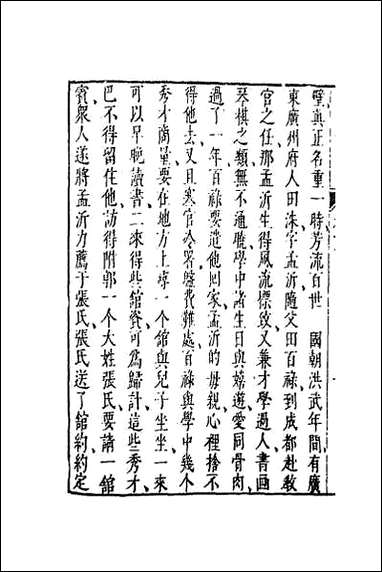 璧真正名重一時芳流百世　國朝洪武年間有廣
東廣州府人田洙字孟沂隨父田百祿到成都赴教
官之任那孟沂生得風流標致又兼才學過人書畫
琴棋之類無不通曉學中諸生日與嬉遊愛同骨肉
過了一年百祿要遣他回家孟沂的母親心裡捨不
得他去又且寒官冷署盤費難處百祿與學中幾个
秀才商量要在地方上尋一个館與兒子坐坐一來
可以早晚讀書二來得些館資可為歸計這些秀才
巴不得留住他訪得附郭一个大姓張氏要請一館
賓衆人遂將孟沂力薦于張氏張氏送了館約約定